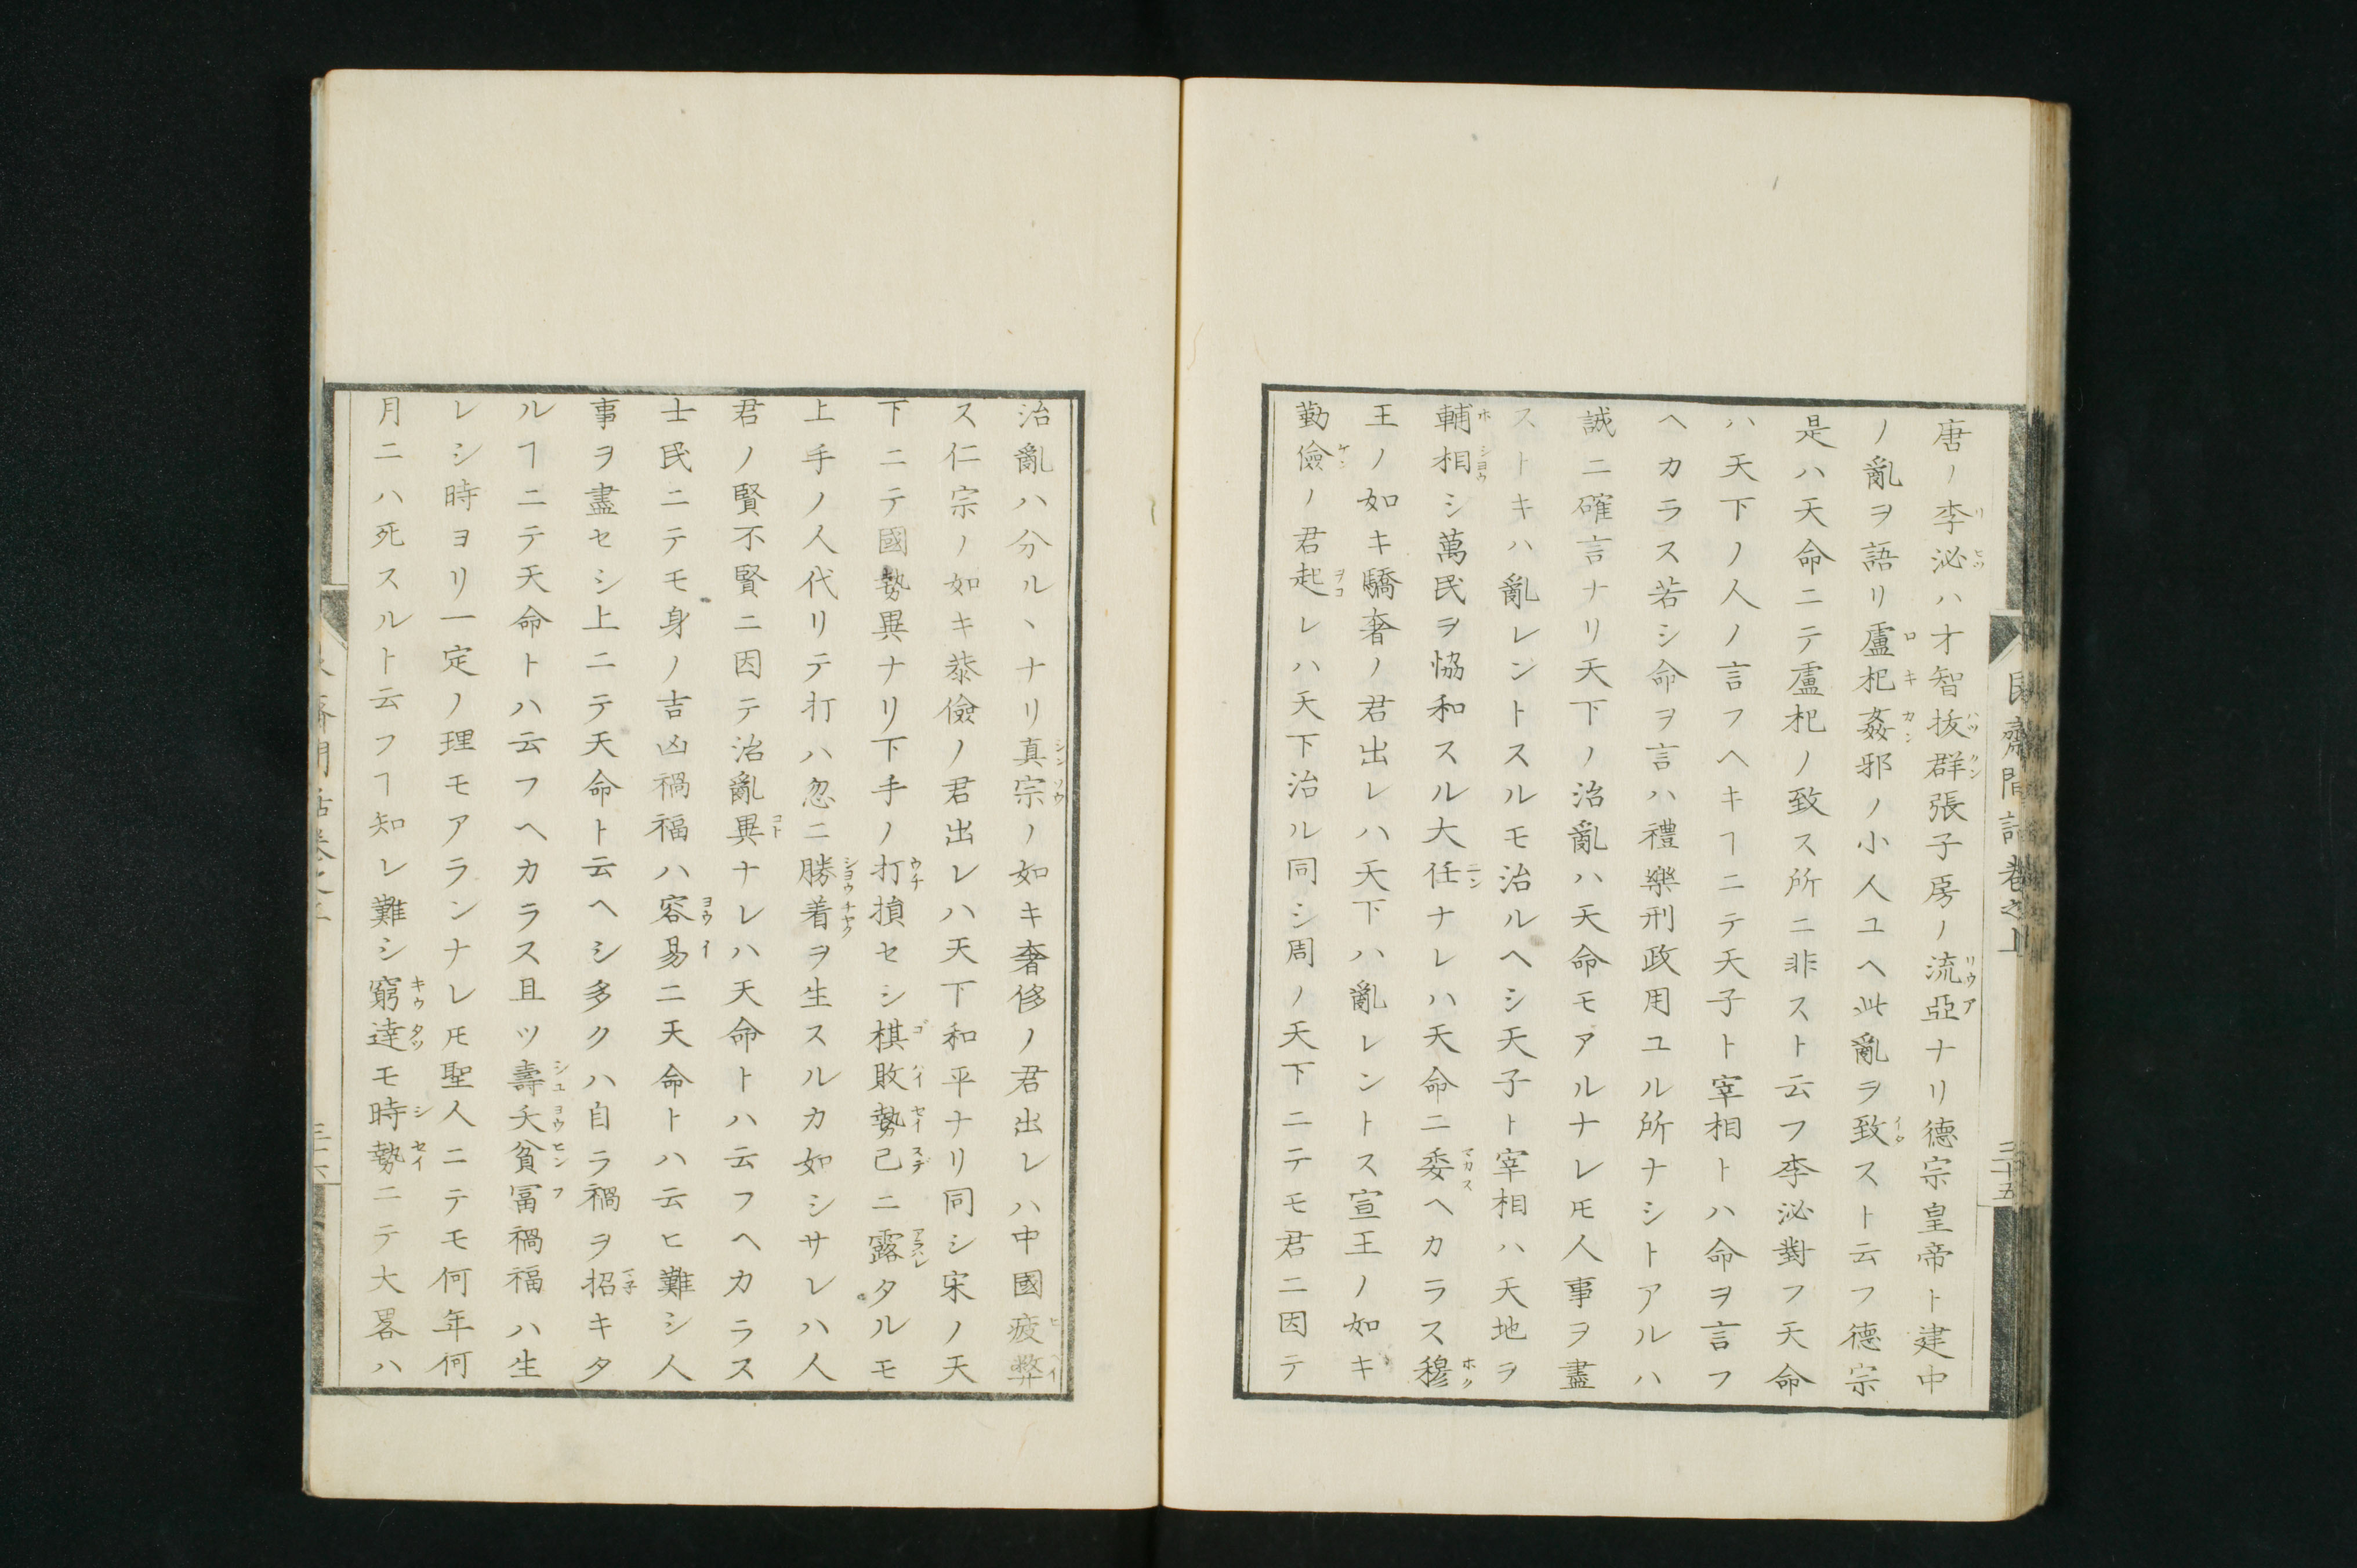 唐ノ李泌ハ才智抜群張子房ノ流亞ナリ德宗皇帝ト建中
ノ亂ヲ語リ盧杞姦邪ノ小人ユヘ此亂ヲ致スト云フ德宗
是ハ天命ニテ盧杞ノ致ス所ニ非スト云フ李泌對フ天命
ハ天下ノ人ノ言フヘキヿニテ天子ト宰相トハ命ヲ言フ
ヘカラス若シ命ヲ言ハ禮樂刑政用ユル所ナシトアルハ
誠ニ確言ナリ天下ノ治亂ハ天命モアルナレ𪜈人事ヲ盡
ストキハ亂レントスルモ治ルヘシ天子ト宰相ハ天地ヲ
輔相シ萬民ヲ恊和スル大任ナレハ天命ニ委ヘカラス穆
王ノ如キ驕奢ノ君出レハ天下ハ亂レントス宣王ノ如キ
勤儉ノ君起レハ天下治ル同シ周ノ天下ニテモ君ニ因テ
治亂ハ分ルヽナリ真宗ノ如キ奢侈ノ君出レハ中國疲弊
ス仁宗ノ如キ恭儉ノ君出レハ天下和平ナリ同シ宋ノ天
下ニテ國勢異ナリ下手ノ打損セシ棋敗勢已ニ露タルモ
上手ノ人代リテ打ハ忽ニ勝着ヲ生スルカ如シサレハ人
君ノ賢不賢ニ因テ治亂異ナレハ天命トハ云フヘカラス
士民ニテモ身ノ吉凶禍福ハ容易ニ天命トハ云ヒ難シ人
事ヲ盡セシ上ニテ天命ト云ヘシ多クハ自ラ禍ヲ招キタ
ルヿニテ天命トハ云フヘカラス且ツ壽夭貧冨禍福ハ生
レシ時ヨリ一定ノ理モアランナレ𪜈聖人ニテモ何年何
月ニハ死スルト云フヿ知レ難シ窮達モ時勢ニテ大畧ハ